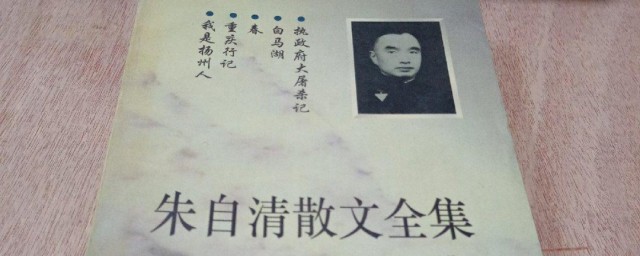 执政府大屠杀记
白马湖
春
重庆行记
我是扬州人
朱自清散文全集